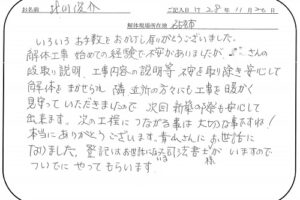 お名前 俊介 ご記入日 H28年11月26日
解体現場所在地
いろいろお手数をおかけして有りがとうございました。
解体工事 始めての経験で不安がありましたが さんの
段取り説明、工事内容の説明等 不安を取り除き安心して
解体をまかせられ 隣近所の方々にも工事を暖かく
見守っていただきましたので 次回 新築の際も安心して
出来ます。次の工程につながる事は大切な事ですね!
本当にありがとうございます。青山さんにお世話に
なりました。登記はお世話になっている司法書士様がいますので
ついでに やってもらいます。